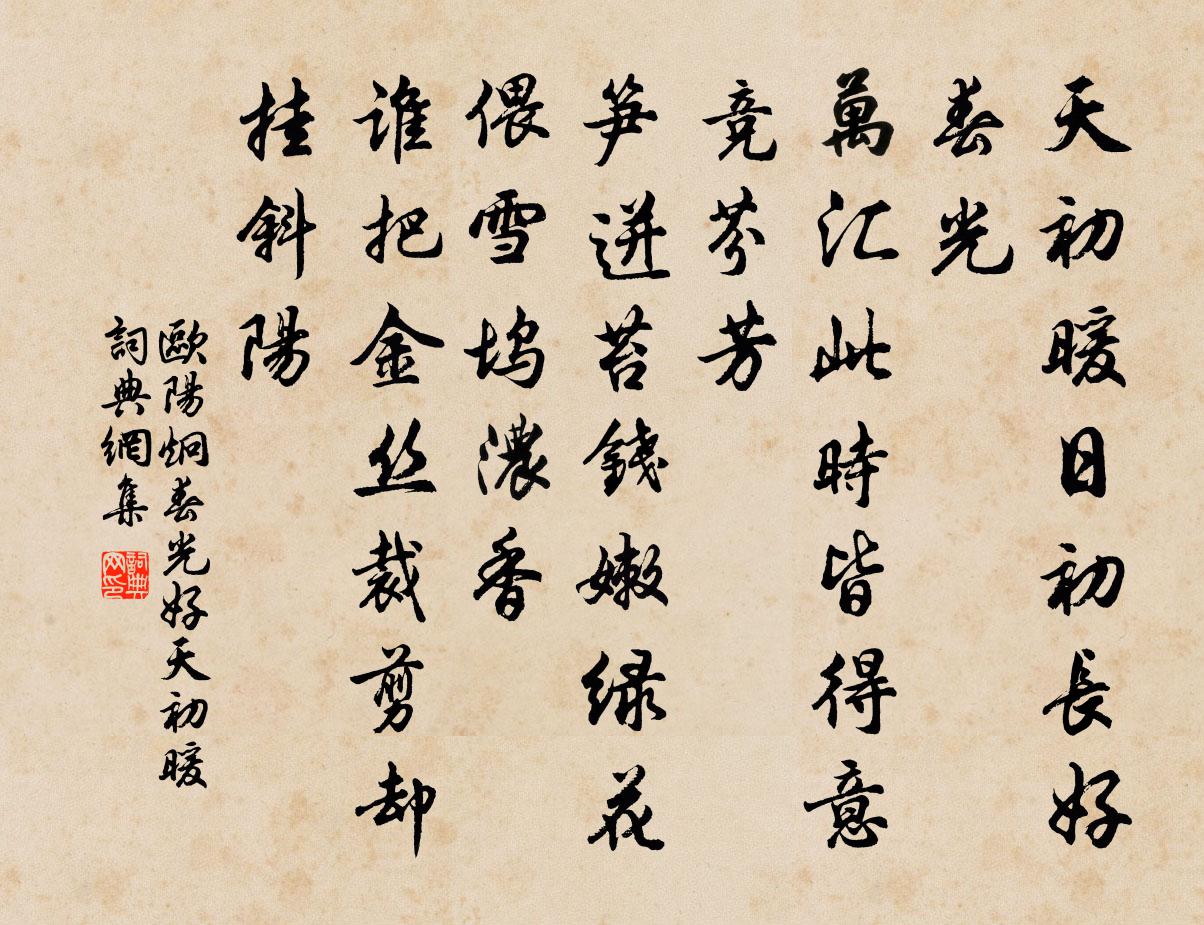 天初暖日初長好
春光
萬汇此時皆得意
竞芬芳
笋迸苔錢嫩绿花
偎雪坞濃香
谁把金丝裁剪却
挂斜陽
歐陽炯春光好天初暖
詞典網集
詞典网印